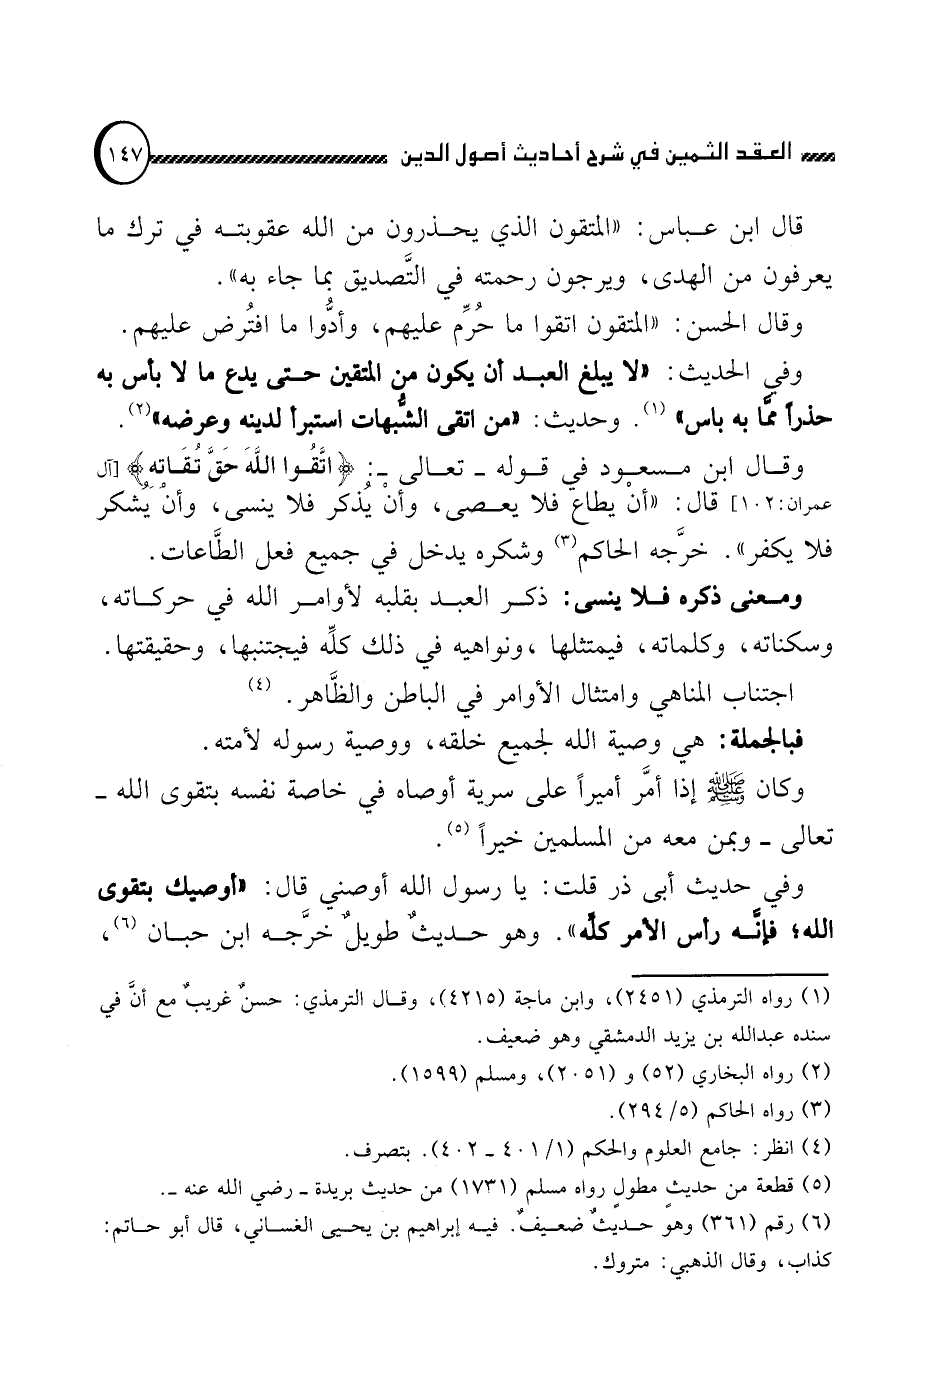 العقد الثمين في شرح أحاديث أصول الدين ١٤٧
قال ابن عباس: «المتقون الذي يحذرون من الله عقوبته في ترك ما
يعرفون من الهدى، ويرجون رحمته في التَّصديق بما جاء به».
وقال الحسن: «المتقون اتقوا ما حُرِّم عليهم، وأدُّوا ما افتُرض عليهم.
وفي الحديث: «لا يبلغ العبد أن يكون من المتقين حتى يدع ما لا بأس به
حذراً ممَّا به باس» (١). وحديث: «من اتقى الشُّبهات استبرأ لدينه وعرضه»(٢).
وقال ابن مسعود في قوله ـ تعالى ـ: ﴿اتَّقُوا اللَّهَ حَقَّ تُقَاتِهِ﴾ [آل
عمران: ١٠٢] قال: «أن يطاع فلا يعصى، وأن يُذكر فلا ينسى، وأن يُشكر
فلا يكفر». خرَّجه الحاكم(٣) وشكره يدخل في جميع فعل الطَّاعات.
ومعنى ذكره فلا ينسى: ذكر العبد بقلبه لأوامر الله في حركاته،
وسكناته، وكلماته، فيمتثلها ،ونواهيه في ذلك كلِّه فيجتنبها، وحقيقتها.
اجتناب المناهي وامتثال الأوامر في الباطن والظَّاهر. (٤)
فبالجملة: هي وصية الله لجميع خلقه، ووصية رسوله لأمته.
وكان ﷺ إذا أمَّر أميراً على سرية أوصاه في خاصة نفسه بتقوى الله ـ
تعالى ـ وبمن معه من المسلمين خيراً (٥).
وفي حديث أبي ذر قلت: يا رسول الله أوصني قال: «أوصيك بتقوى
الله؛ فإنَّه رأس الأمر كلَّه». وهو حديثٌ طويلٌ خرَّجه ابن حبان (٦)،
(١) رواه الترمذي (٢٤٥١)، وابن ماجة (٤٢١٥)، وقال الترمذي: حسنٌ غريبٌ مع أنَّ في
سنده عبدالله بن يزيد الدمشقي وهو ضعيف.
(٢) رواه البخاري (٥٢) و (٢٠٥١)، ومسلم (١٥٩٩).
(٣) رواه الحاكم (٥/ ٢٩٤).
(٤) انظر: جامع العلوم والحكم (١/ ٤٠١ ـ ٤٠٢). بتصرف.
(٥) قطعة من حديثٍ مطولٍ رواه مسلم (١٧٣١) من حديث بريدة ـ رضي الله عنه ـ.
(٦) رقم (٣٦١) وهو حديثٌ ضعيفٌ. فيه إبراهيم بن يحيى الغساني، قال أبو حاتم:
كذاب، وقال الذهبي: متروك.